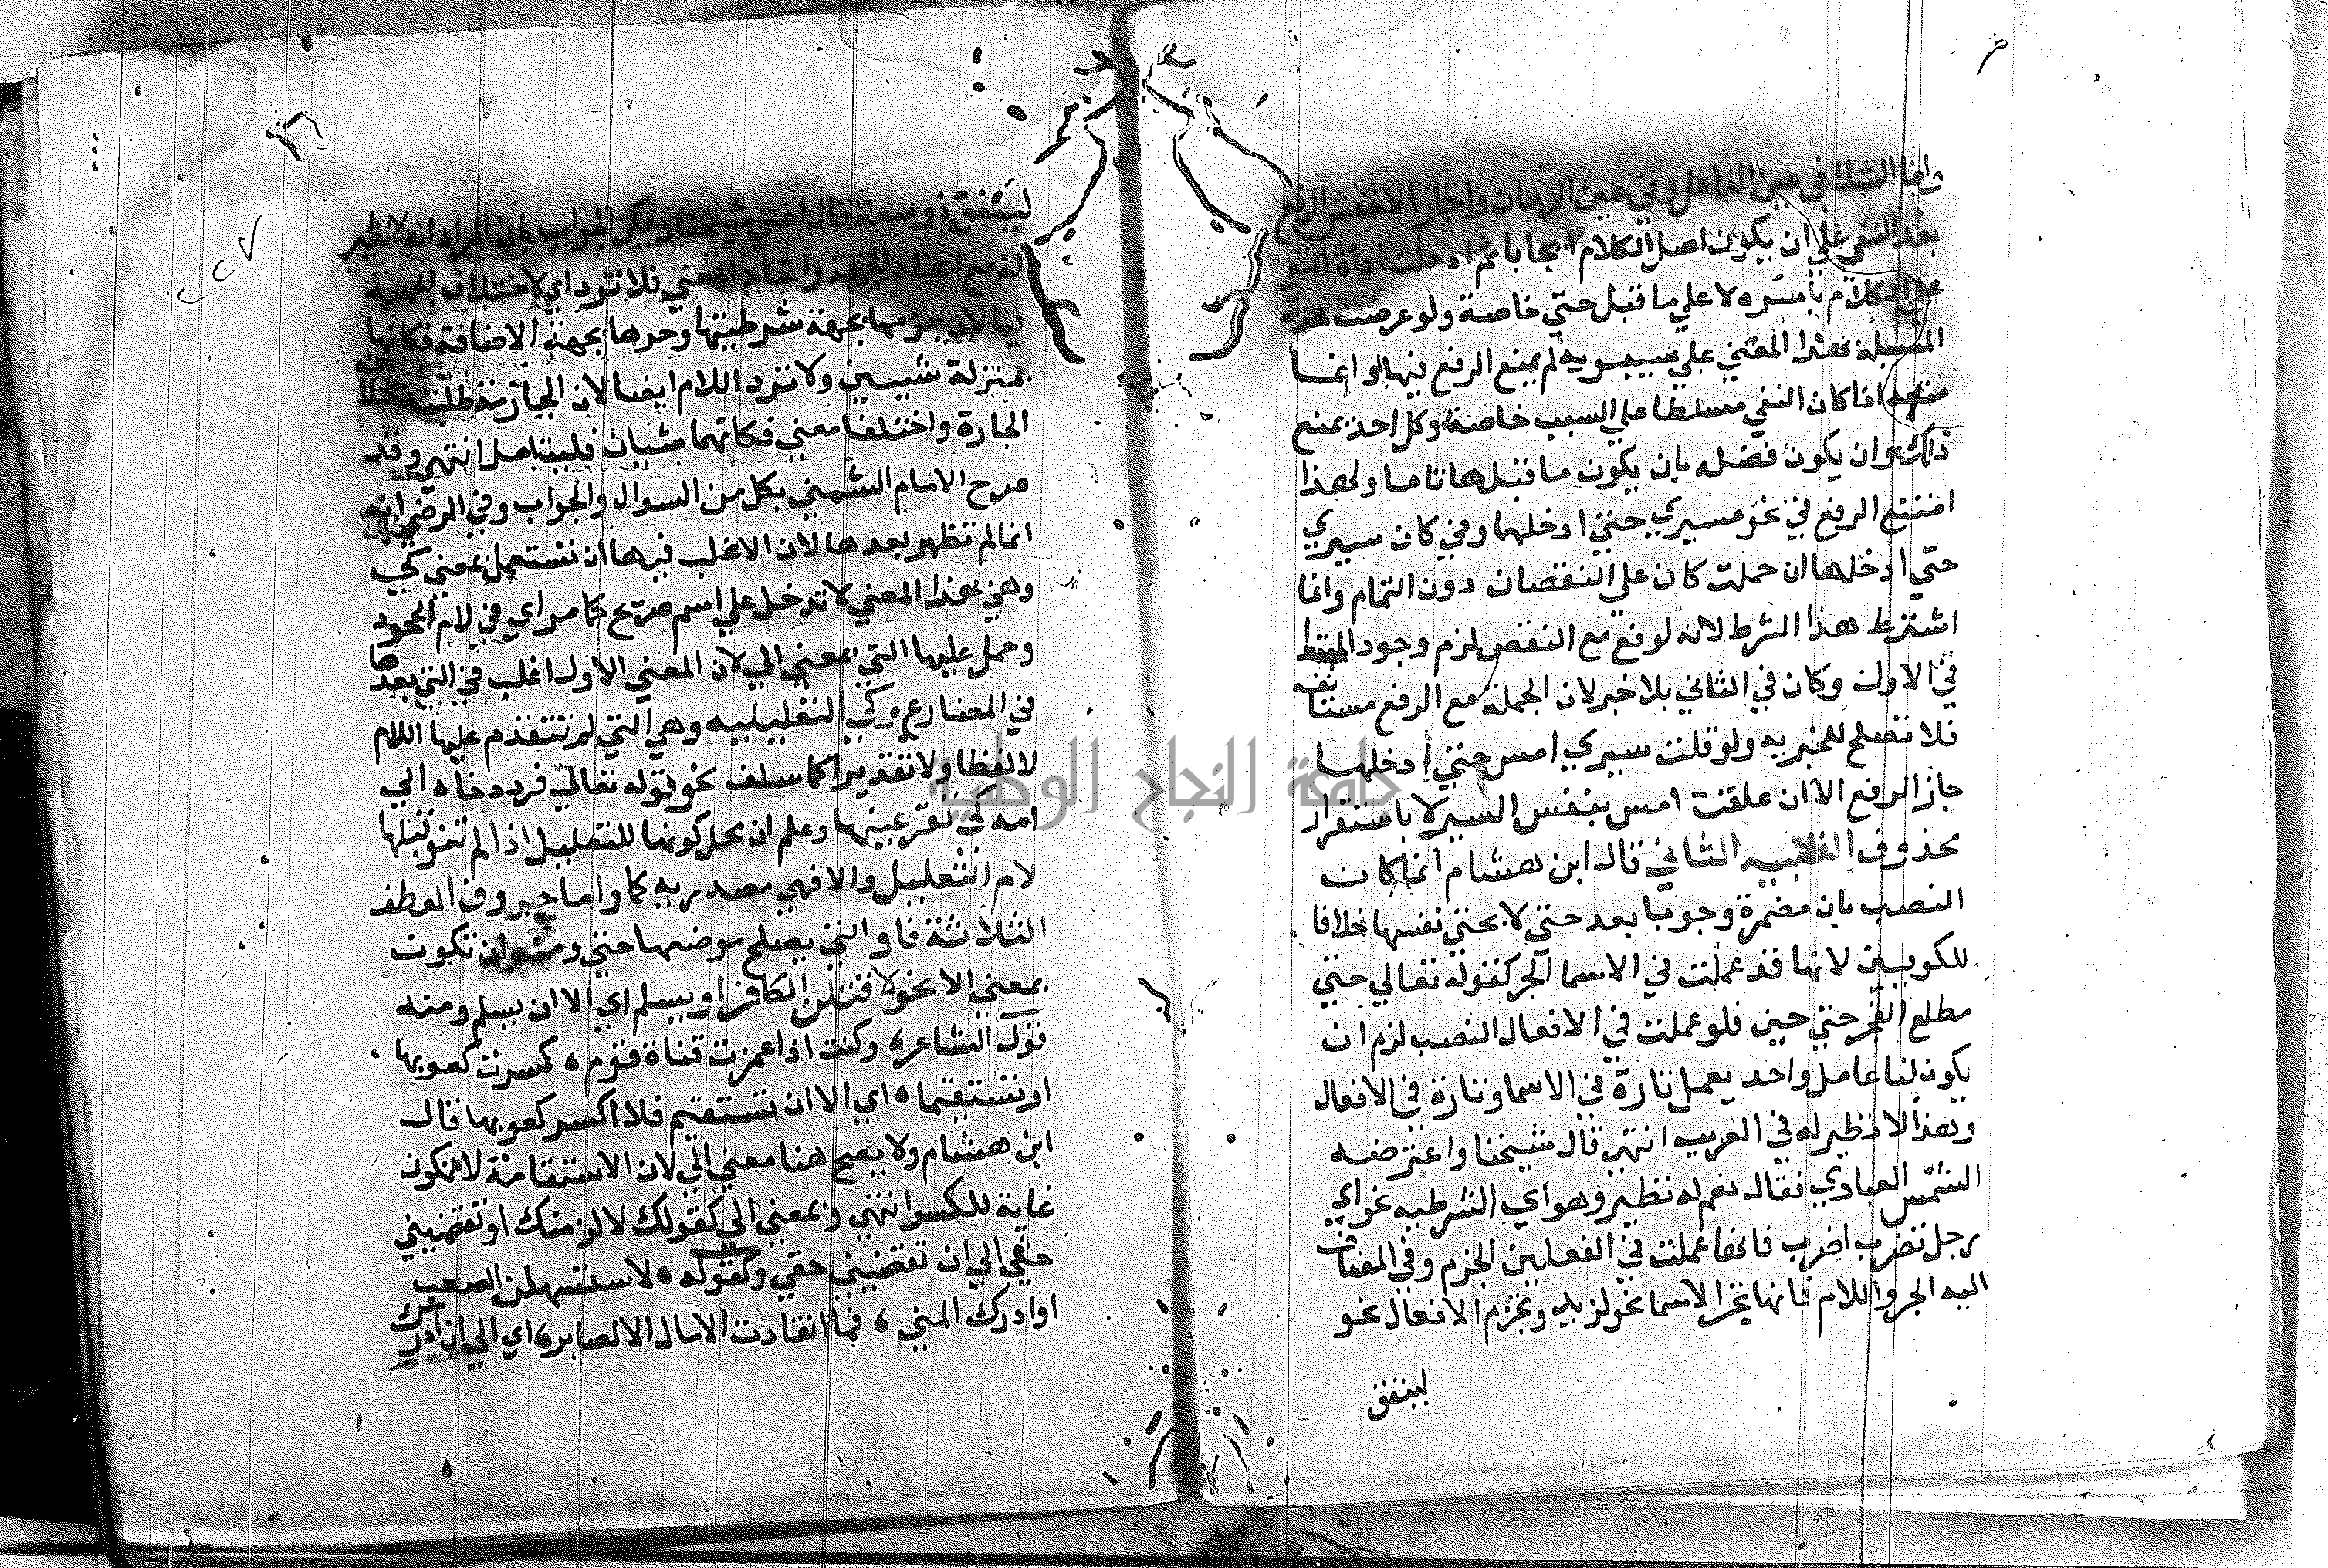 وانما الشك في عين الفاعل وفي عين الزمان واجاز الاخفش الرفع
بعد النفي علي ان يكون اصل الكلام ايجابا ثم ادخلت اداة النفي
علي الكلام باسره لا علي ما قبل حتي خاصة ولو عرضت هذه
المسيلة بهذا المعني علي سيبويه لم يمنع الرفع فيها وانما
منعه اذا كان النفي مسلطا علي السبب خاصة وكل احد يمنع
ذلك وان يكون فضله بان يكون ما قبلها تاما ولهذا
امتنع الرفع في نحو سيري حتي ادخلها وفي كان سيري
حتي ادخلها ان حملت كان علي النقصان دون التمام وانما
اشترط هذا الشرط لانه لو رفع مع النقص لزم وجود المبتدا
في الاول وكان في الثاني بلا خبر لان الجملة مع الرفع مستانفه
فلا تصلح للخبريه ولو قلت سيري امس حتي ادخلها
جاز الرفع الا ان علقت امس بنفس السير لا باستقرار
محذوف التنبيه الثاني قال ابن هشام انما كان
النصب بان مضمرة وجوبا بعد حتي لا بحتي نفسها خلافا
للكوفيين لانها قد عملت في الاسما الجر كقوله تعالي حتي
مطلع الفجر حتي حين فلو عملت في الافعال النصب لزم ان
يكون لنا عامل واحد يعمل تارة في الاسما وتارة في الافعال
وهذا لا نظير له في العربيه انتهي قال شيخنا واعترضه
الشمس العبادي فقال نعم له نظير وهو اي الشرطيه نحو اي
رجل تضرب اضرب فانها عملت في الفعلين الجزم وفي المضاف
اليه الجر واللام فانها تجر الاسما نحو لزيد وتجزم الافعال نحو
لينفق
٢٢٧
لينفق ذو سعة قال اعني شيخنا ويمكن الجواب بان المراد انه لا نظير
له مع اتحاد الجهة واتحاد المعني فلا ترد اي لاختلاف الجهة
فيها لان جزمها بجهة شرطيتها وجرها بجهة الاضافة فكانها
بمنزلة شيئين ولا ترد اللام ايضا لان الجازمة طلبيه بخلاف
الجارة واختلفا معني فكانهما شيان فليتامل انتهي وقد
صرح الامام الشمني بكل من السوال والجواب وفي الرضي انه
انما لم تظهر بعدها لان الاغلب فيها ان تستعمل بمعني كي
وهي بهذا المعني لا تدخل علي اسم صريح كما مر اي في لام الجحود
وحمل عليها التي بمعني الي لان المعني الاول اغلب في التي بعدها
في المضارع وكي التعليليه وهي التي لم تتقدم عليها اللام
لا لفظا ولا تقديرا كما سلف نحو قوله تعالي فرددناه الي
امه كي تقر عينها وعلم ان محل كونها للتعليل اذا لم تنو قبلها
لام التعليل والا فهي مصدريه كما واما حروف العطف
الثلاثة فاو التي يصلح موضعها حتي و ان تكون
بمعني الا نحو لاقتلن الكافر او يسلم اي الا ان يسلم ومنه
قول الشاعر، وكنت اذا غمزت قناة قوم ، كسرت كعوبها
او تستقيما ، اي الا ان تستقيم فلا اكسر كعوبها قال
ابن هشام ولا يصح هنا معني الي لان الاستقامة لا تكون
غاية للكسر انتهي وبمعني الي كقولك لالزمنك او تقضيني
حقي الي ان تقضيني حقي وكقوله ، لاستسهلن الصعب
او ادرك المني ، فما انقادت الامال الا لصابر، اي الي ان ادرك
جامعة النجاح الوطنية